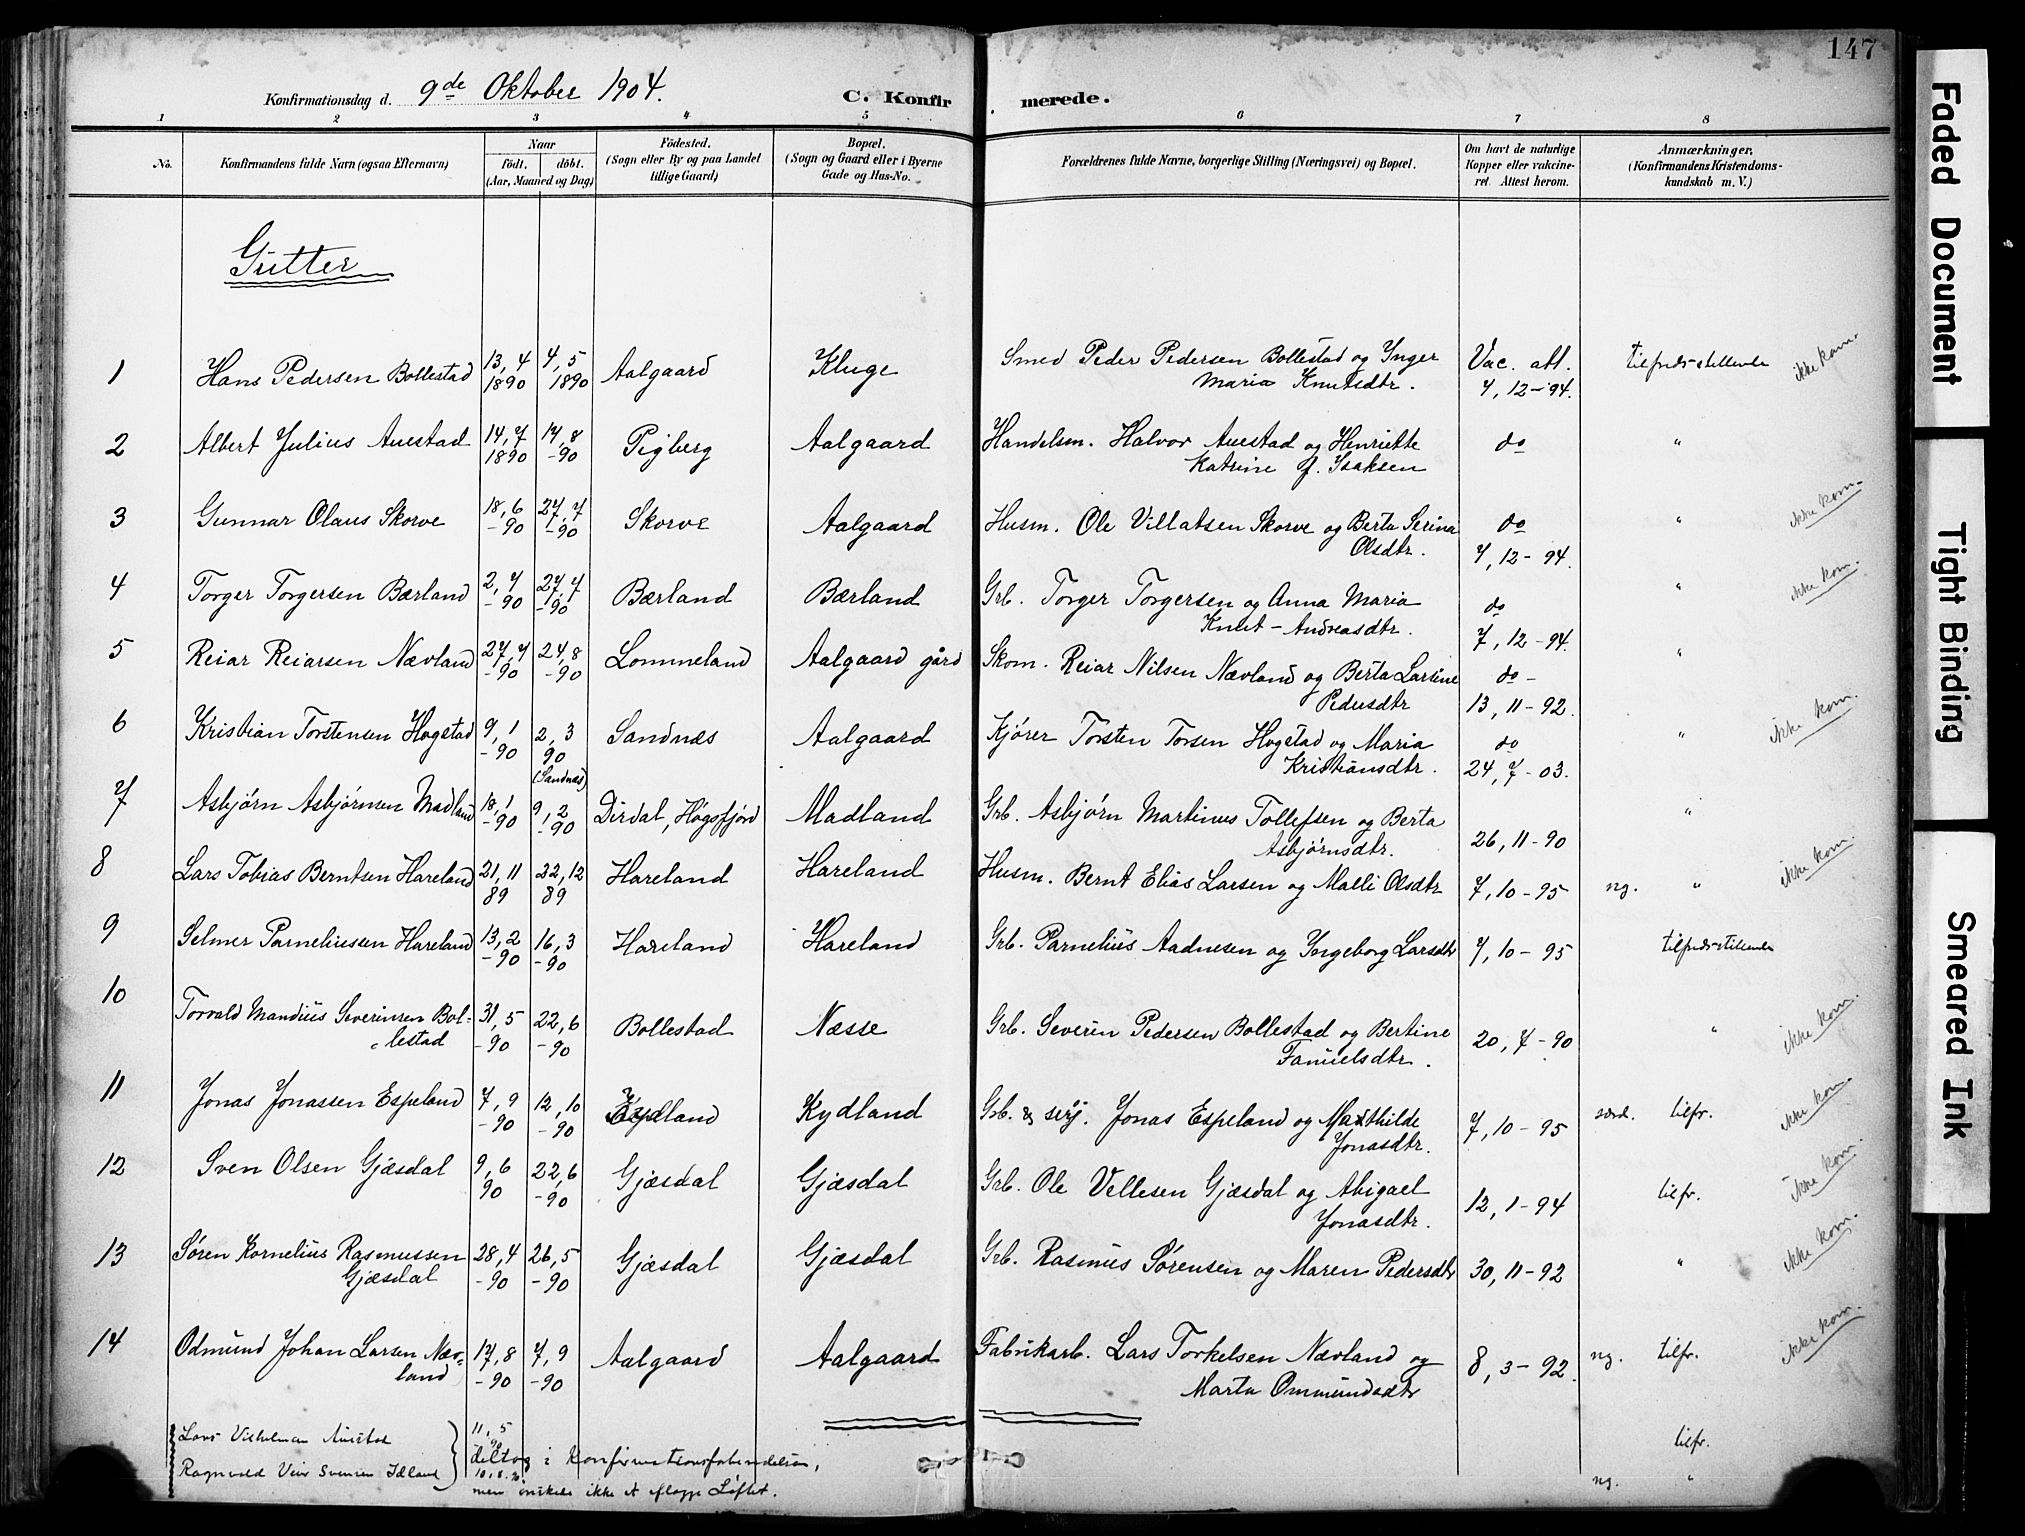 147
Konfirmationsdag d. 9de Oktober 1904. C. Konfirmerede.
1 2 3 4 5 6 7 8
No. Konfirmandens fulde Navn (ogsaa Efternavn) Naar født. døbt. (Aar, Maaned og Dag) Födested. (Sogn eller By og paa Landet tillige Gaard) Bopæl. (Sogn og Gaard eller i Byerne Gade og Hus-No. Forældrenes fulde Navne, borgerlige Stilling (Næringsvei) og Bopæl. Om havt de naturlige Kopper eller vaccineret. Attest herom. Anmærkninger. (Konfirmandens Kristendomskundskab m. V.)
Gutter
1 Hans Pedersen Bollestad 13,4 1890 4,5 1890 Aalgaard Kluge Smed Peder Pedersen Bollestad og Ynger Maria Knutsdtr. Vac. att. 7,12-94. tilfreds-stillende ikke kom.
2 Albert Julius Auestad 14,7 1890 17,8 -90 Aalgaard Handelsm. Halvor Auestad og Henriette Katrine f. Isaksen do "
3 Gunnar Olaus Skorve 18,6 -90 27,7 -90 Skorve Aalgaard Husm. Ole Villatsen Skorve og Berta Serina Olsdtr. do 7,12-94. " ikke kom.
4 Torger Torgersen Bærland 2,7 -90 27,7 -90 Bærland Bærland Grb. Torger Torgersen og Anna Maria Knut-Andreasdtr. do 7,12-94. " ikke kom.
5 Reiar Reiarsen Nævland 27,7 -90 24,8 -90 Lommeland Aalgaard gård Skom. Reiar Nilsen Nævland og Berta Larsine Pedersdtr do - 13,11-92. "
6 Kristian Torstensen Hogstad 9,1 -90 2,3 90 (Sandnæs) Sandnæs Aalgaard Kjører Torsten Torsen Hogstad og Maria Kristiansdtr. do 24,7-03. " ikke kom.
7 Asbjørn Asbjørnsen Madland 18,1 -90 9,2 -90 Dirdal, Høgsfjord Madland Grb. Asbjørn Martinus Tollefsen og Berta Asbjørnsdtr. 26,11-90 "
8 Lars Tobias Berntsen Hareland 21,11 89 22,12 89 Hareland Hareland Husm. Bernt Elias Larsen og Malli Olsdtr 7,10-95 ng. " ikke kom.
9 Selmer Parneliussen Hareland 13,2 -90 16,3 -90 Hareland Hareland Grb. Parnelius Aadnesen og Yngeborg Larsdtr 7,10-95 tilfreds-stillende
10 Torvald Mandius Severinsen Bollestad 31,5 -90 22,6 -90 Bollestad Næsse Grb. Severin Pedersen Bollestad og Bertine Fanuelsdtr. 20,7-90 " ikke kom.
11 Jonas Jonassen Espeland 7,9 -90 12,10 -90 Kydland Grb. & serj. Jonas Espeland og Mathilde Jonasdtr. 7,10-95 særd. tilfr. ikke kom.
12 Sven Olsen Gjæsdal 9,6 90 22,6 -90 Gjæsdal Gjæsdal Grb. Ole Vellesen Gjæsdal og Abigael Jonasdtr. 12,1-94 tilfr. ikke kom.
13 Søren Kornelius Rasmussen Gjæsdal 28,4 -90 26,5 -90 Gjæsdal Gjæsdal Grb. Rasmus Sørensen og Maren Pedersdtr 30,11-92 " ikke kom.
14 Odmund Johan Larsen Nævland 17,8 -90 7,9 -90 Aalgaard Aalgaard Fabrikarb. Lars Torkelsen Nævland og Marta Ommundsdtr 8,3-92. ng. tilfr. ikke kom.
Lars Vilhelman Auestad 11,5 tilfr.
Ragnvald Svensen Idland 10,8 deltog i Konfirmationsforberedelsen, ng. "
men ønskede ikke at aflægge Løftet.
Faded Document
Tight Binding
Smeared Ink